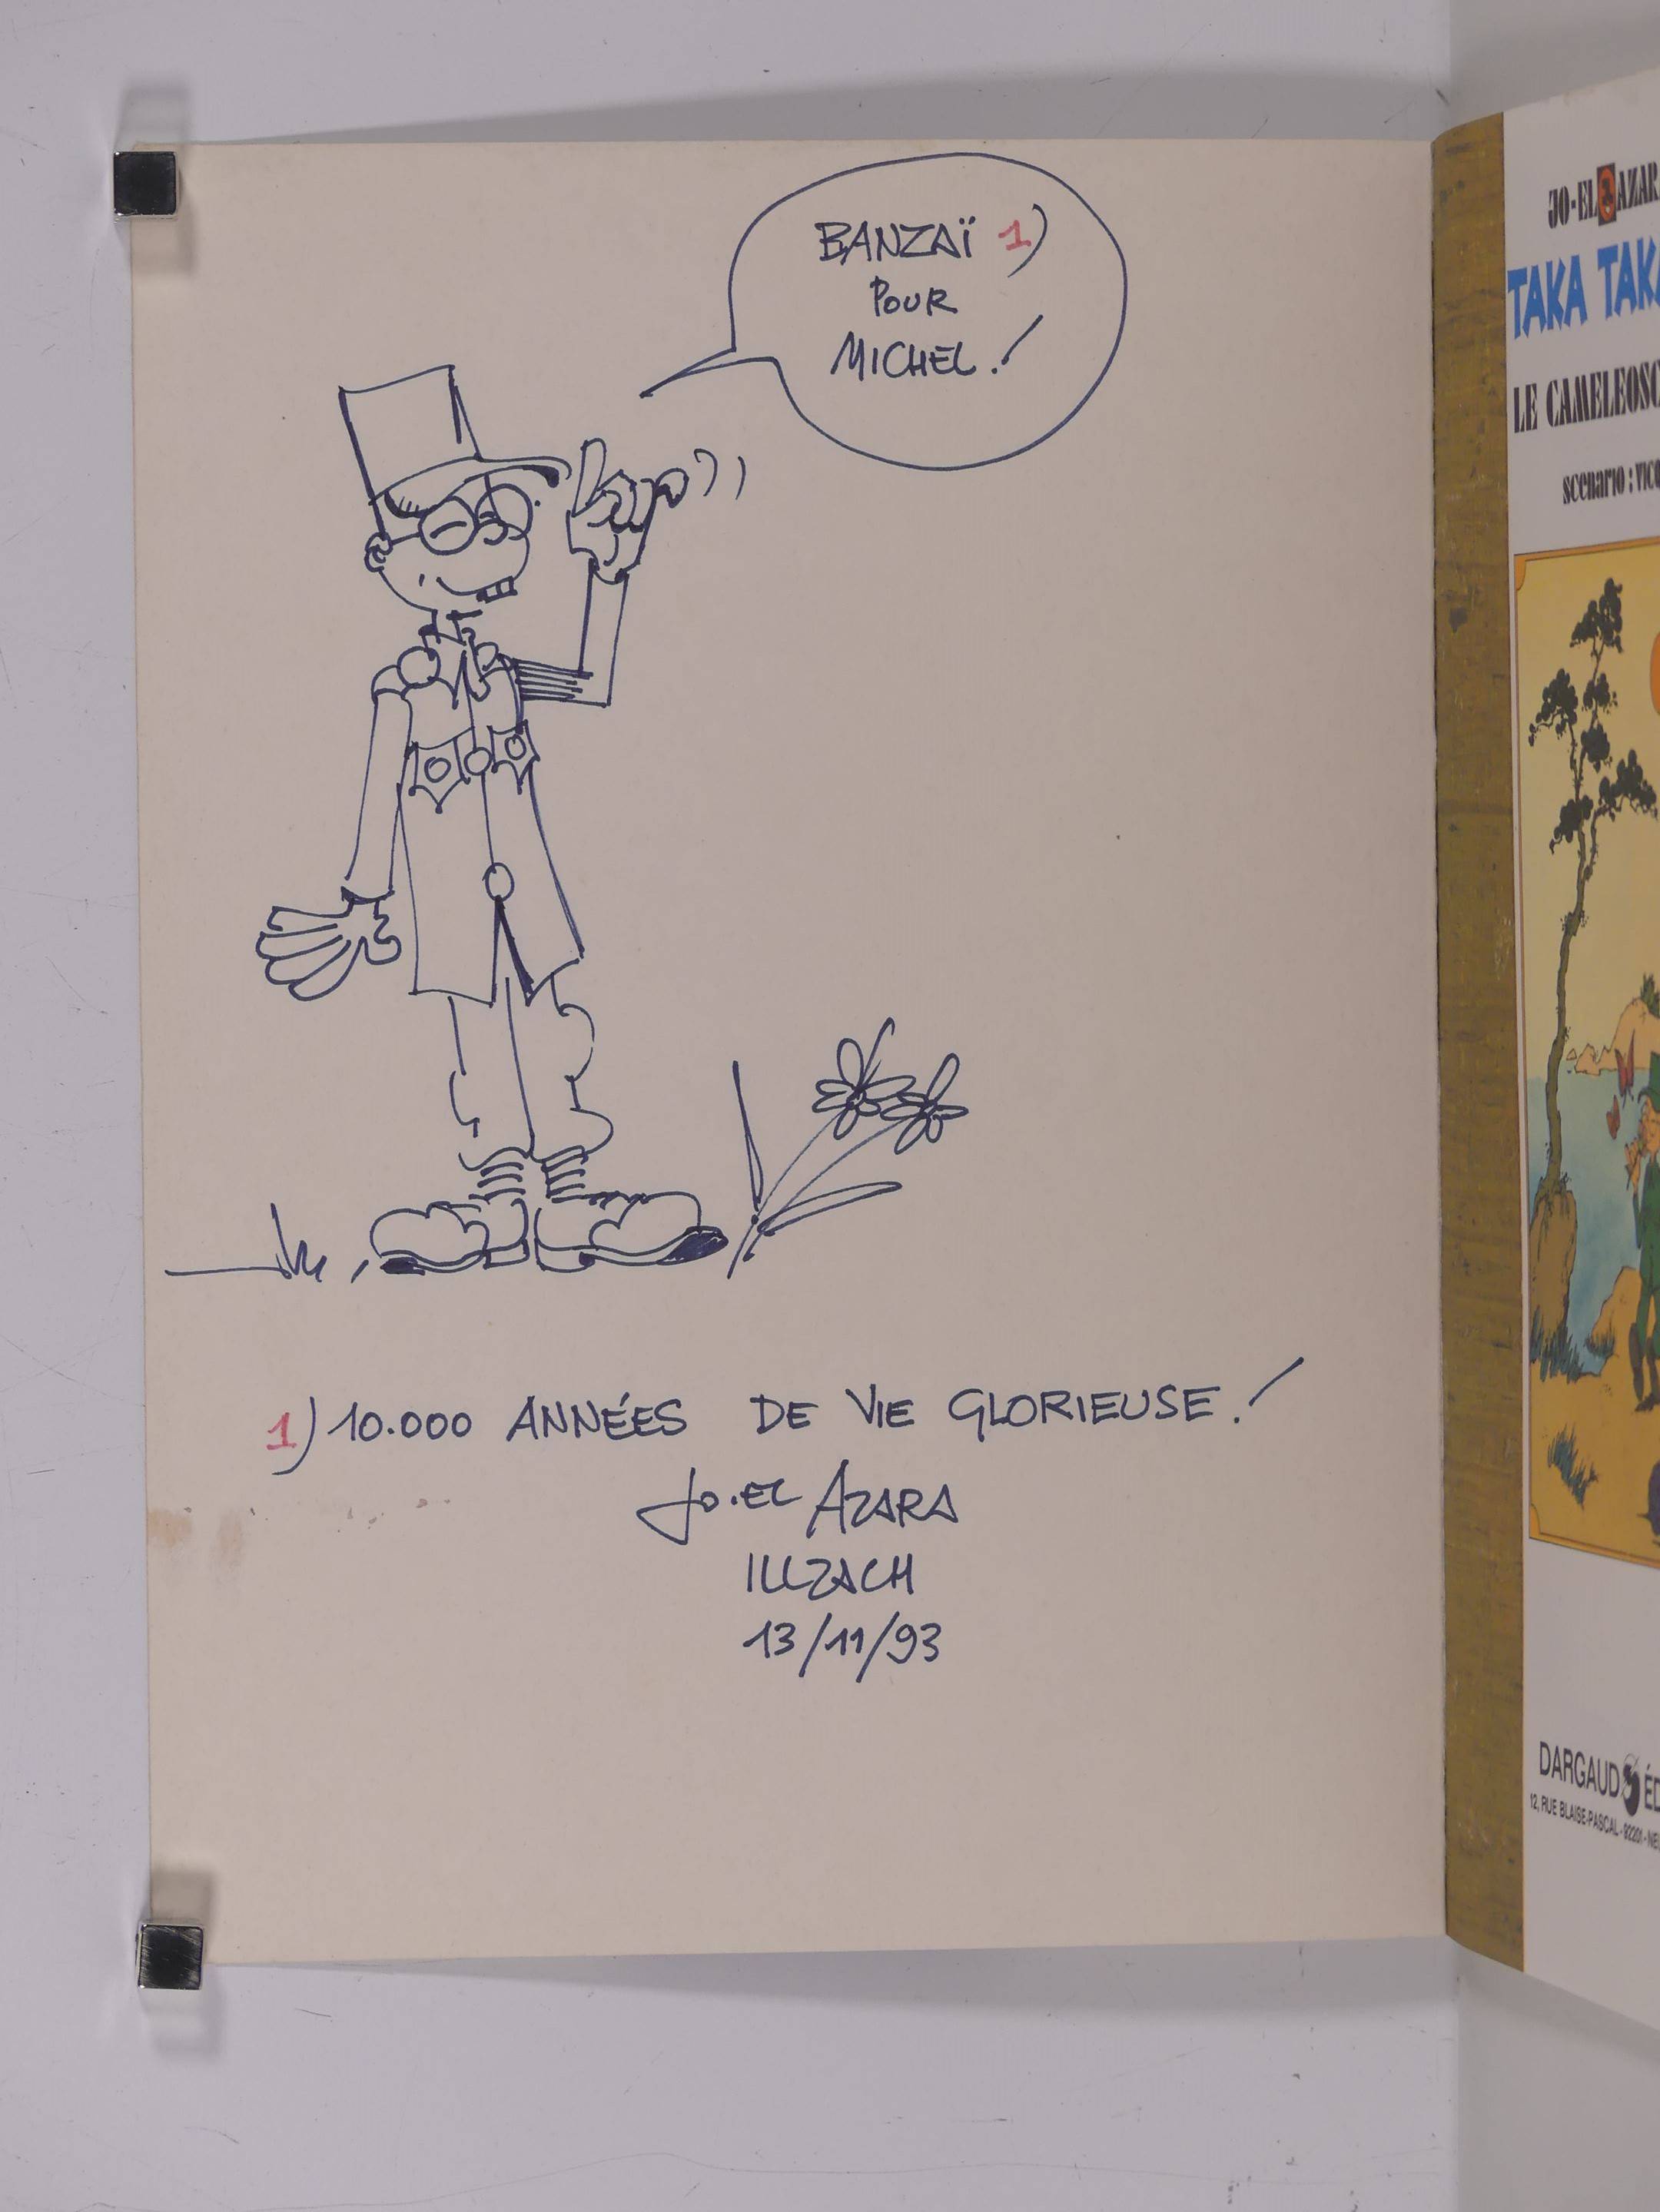 BANZAÏ 1)
POUR
MICHEL !
1) 10.000 ANNÉES DE VIE GLORIEUSE !
JO-EL AZARA
ILLZACH
13/11/93
JO-EL AZAR
TAKA TAK
LE CAMELEOSC
scenario : VIC
DARGAUD ÉD
12, RUE BLAISE-PASCAL - 92201 - NE